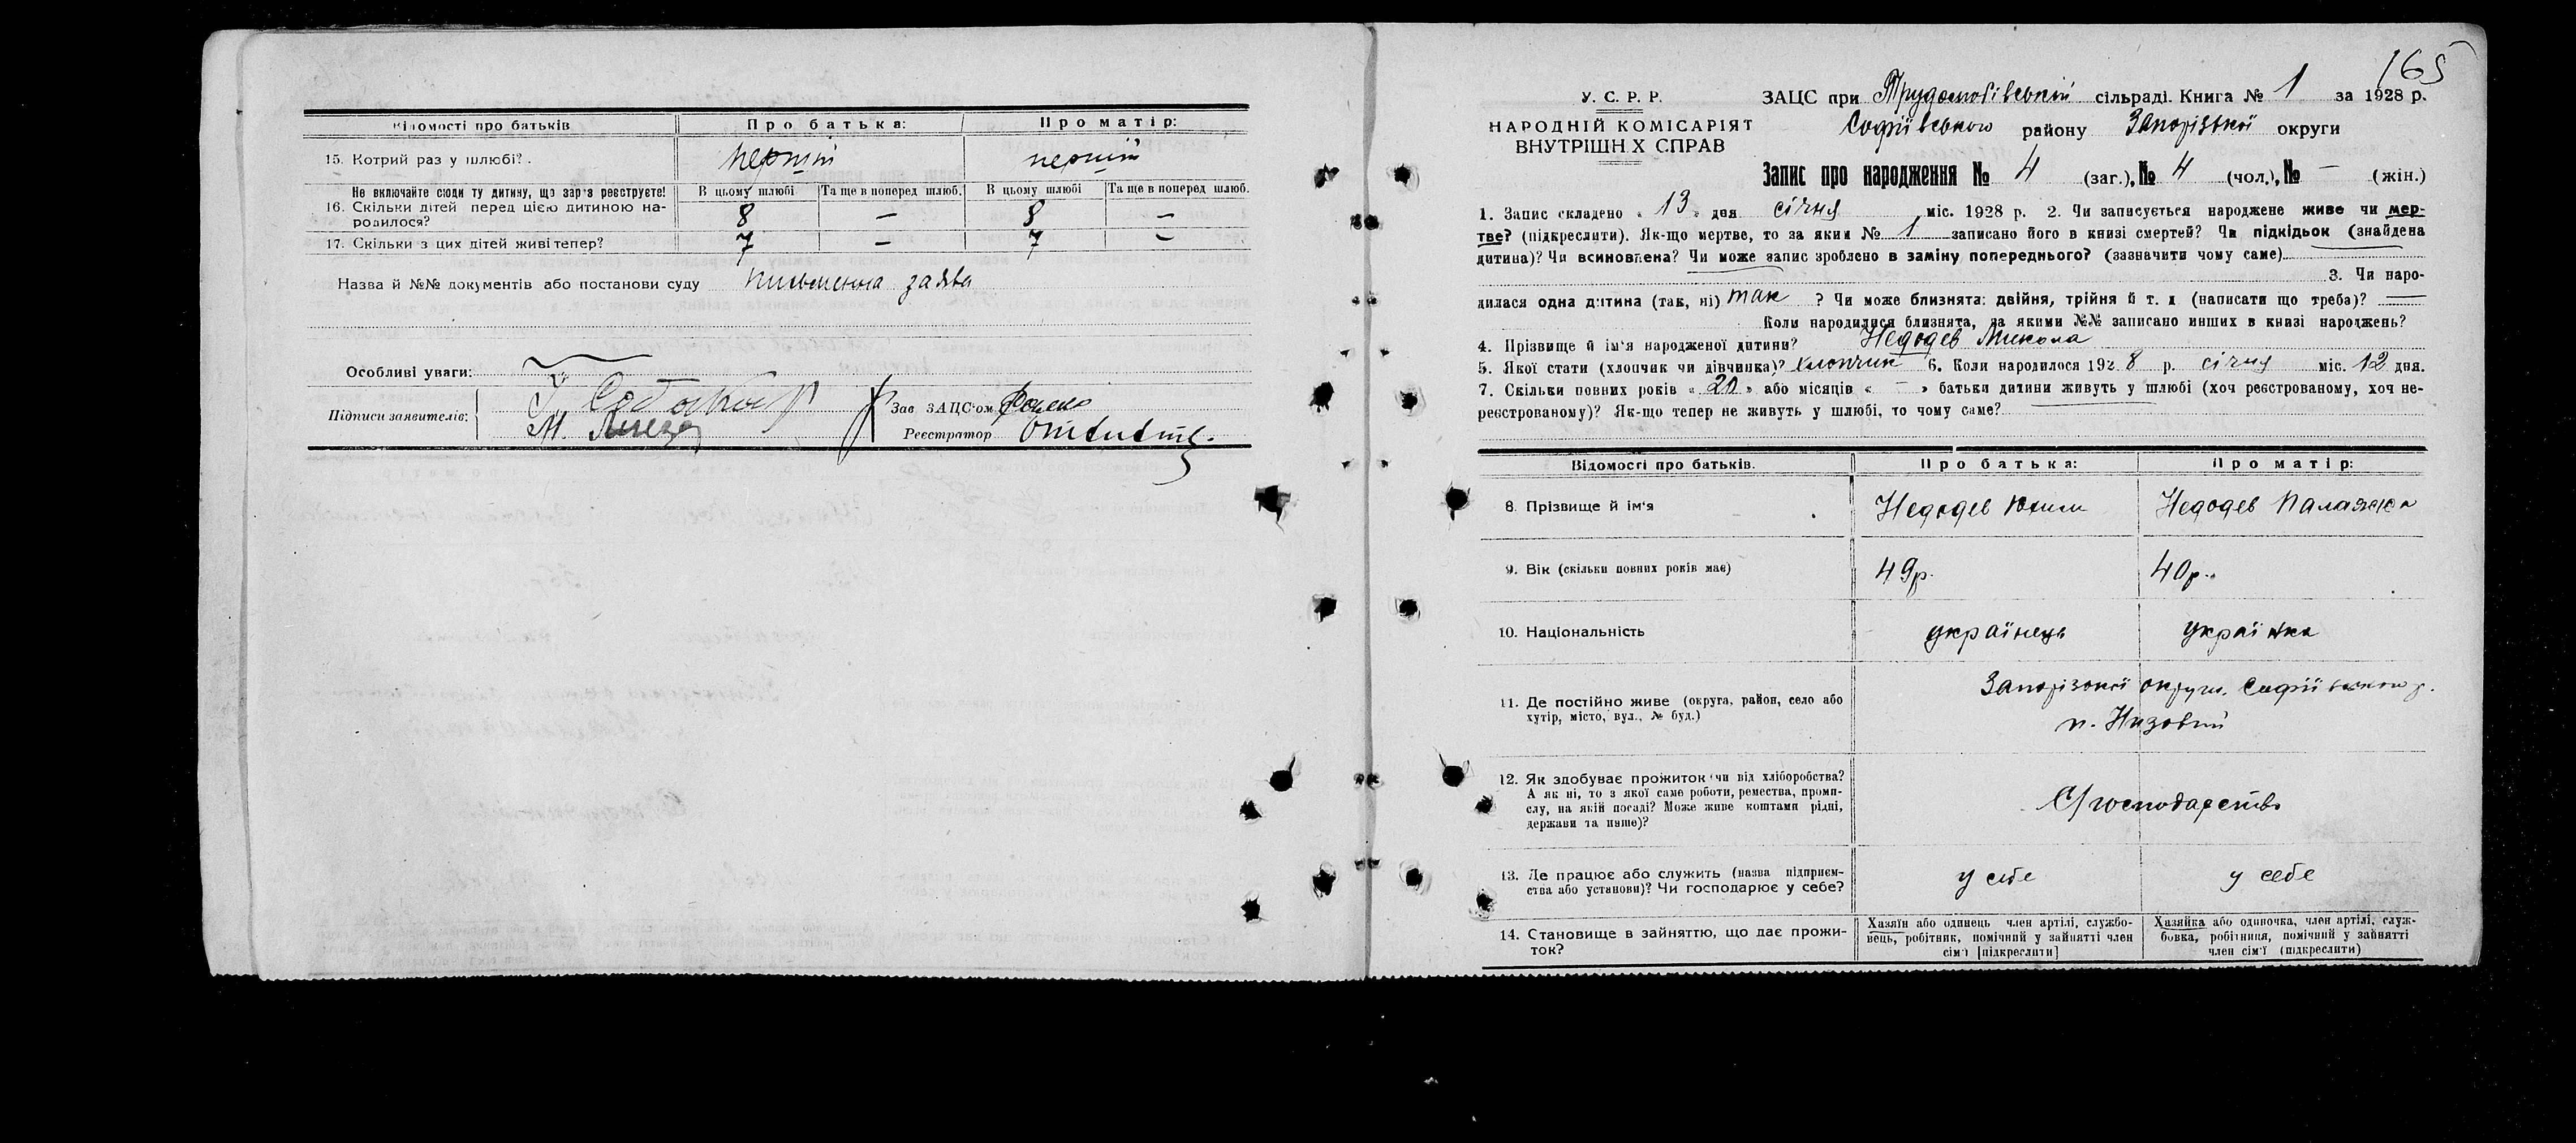 Відомості про батьків
Про батька:
Про матір:
15. Котрий раз у шлюбі?
перший
перший
Не включайте сюди ту дитину, що зараз реєструєте!
В цьому шлюбі
Та ще в поперед шлюб.
В цьому шлюбі
Та ще в поперед шлюб.
16. Скільки дітей перед цією дитиною на-
родилося?
8 — 8 —
17. Скільки з цих дітей живі тепер?
7 — 7 —
Назва й №№ документів або постанови суду письменна заява
Особливі уваги:
Підписи заявителів:
М.
Зав ЗАЦС'ом
Реєстратор
165
У. С. Р. Р.
НАРОДНІЙ КОМІСАРІЯТ
ВНУТРІШН Х СПРАВ
ЗАЦС при сільраді. Книга № 1 за 1928 р.
Софіївського району Запорізької округи
Запис про народження № 4 (заг.), № 4 (чол.), № — (жін.)
1. Запис складено „ 13 „ дня січня міс. 1928 р. 2. Чи записується народжене живе чи мер-
тве? (підкреслити). Як-що мертве, то за яким № 1 записано його в книзі смертей? Чи підкідьок (знайдена
дитина)? Чи всиновлена? Чи може запис зроблено в заміну попереднього? (зазначити чому саме)
3. Чи наро-
дилася одна дитина (так, ні) так ? Чи може близнята: двійня, трійня й т. д (написати що треба)? —
Коли народилися близнята, за якими №№ записано инших в книзі народжень?
4. Прізвище й ім'я народженої дитини? Недодев Микола
5. Якої стати (хлопчик чи дівчинка)? хлопчик 6. Коли народилося 192 8 р. січня міс. 12 дня.
7. Скільки повних років « 20 » або місяців « — » батьки дитини живуть у шлюбі (хоч реєстрованому, хоч не-
реєстрованому)? Як-що тепер не живуть у шлюбі, то чому саме?
Відомості про батьків.
Про батька:
Про матір:
8. Прізвище й ім'я
Недодев Юхим
Недодев Палажка
9. Вік (скільки повних років має)
49р.
40р.
10. Національність
українець
українка
11. Де постійно живе (округа, район, село або
хутір, місто, вул., № буд.)
Запорізької округи, Софіївського р.
п. Низовий
12. Як здобуває прожиток (чи від хліборобства?
А як ні, то з якої саме роботи, ремества, проми-
слу, на якій посаді? Може живе коштами рідні,
держави та инше)?
С/господарство
13. Де працює або служить (назва підприєм-
ства або установи)? Чи господарює у себе?
у себе
у себе
14. Становище в зайняттю, що дає прожи-
ток?
Хазяїн або одинець член артілі, службо-
вець, робітник, помічний у зайнятті член
сім'ї [підкреслити]
Хазяйка або одиночка, член артілі, служ-
бовка, робітниця, помічний у зайнятті
член сім'ї (підкреслити)